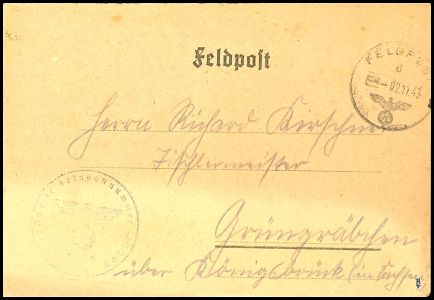 Feldpost
FELDPOST
d
-02.11.43
Herrn Richard Kirschner
Tischlermeister
Grüngräbchen
über Königsbrück (in Sachsen
Feldpostnummer